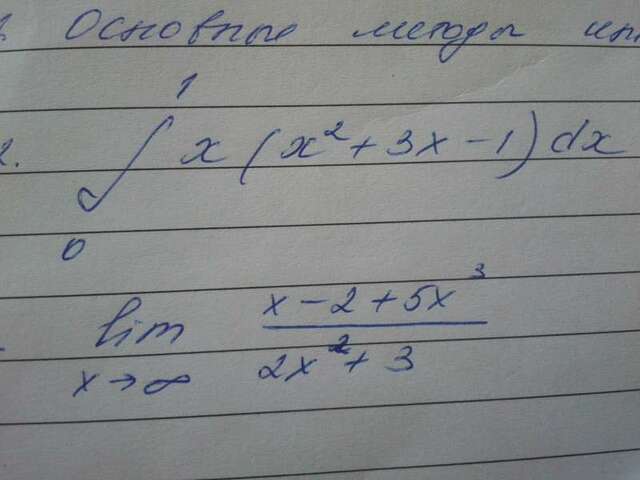 Основные методы
2. ∫₀¹ x (x² + 3x - 1) dx
lim x→∞ (x - 2 + 5x³)/(2x² + 3)